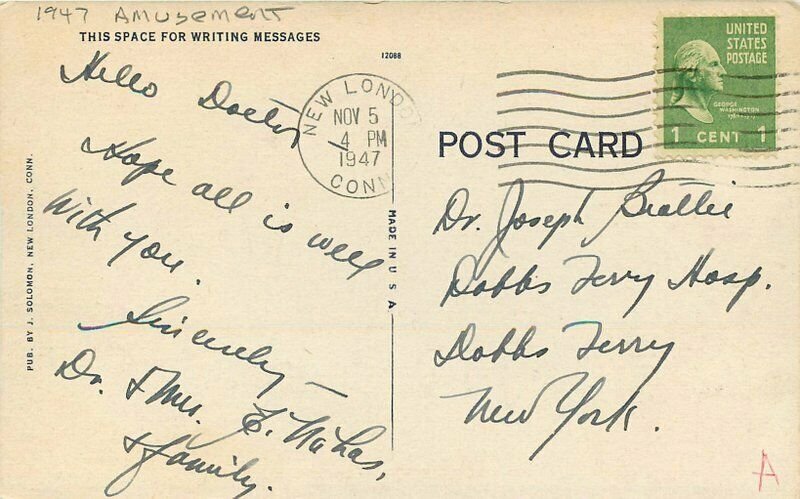 1947 AMUSEMENT
THIS SPACE FOR WRITING MESSAGES
12088
Hello Doctor
Hope all is well
with you.
Sincerely —
Dr. & Mrs. E. Nahas,
& family.
PUB. BY J. SOLOMON, NEW LONDON, CONN.
MADE IN U.S.A.
NEW LONDON
NOV 5
4 PM
1947
CONN
UNITED
STATES
POSTAGE
GEORGE
WASHINGTON
1 CENT 1
POST CARD
Dr. Joseph Beattie
Dobbs Ferry Hosp.
Dobbs Ferry
New York.
A